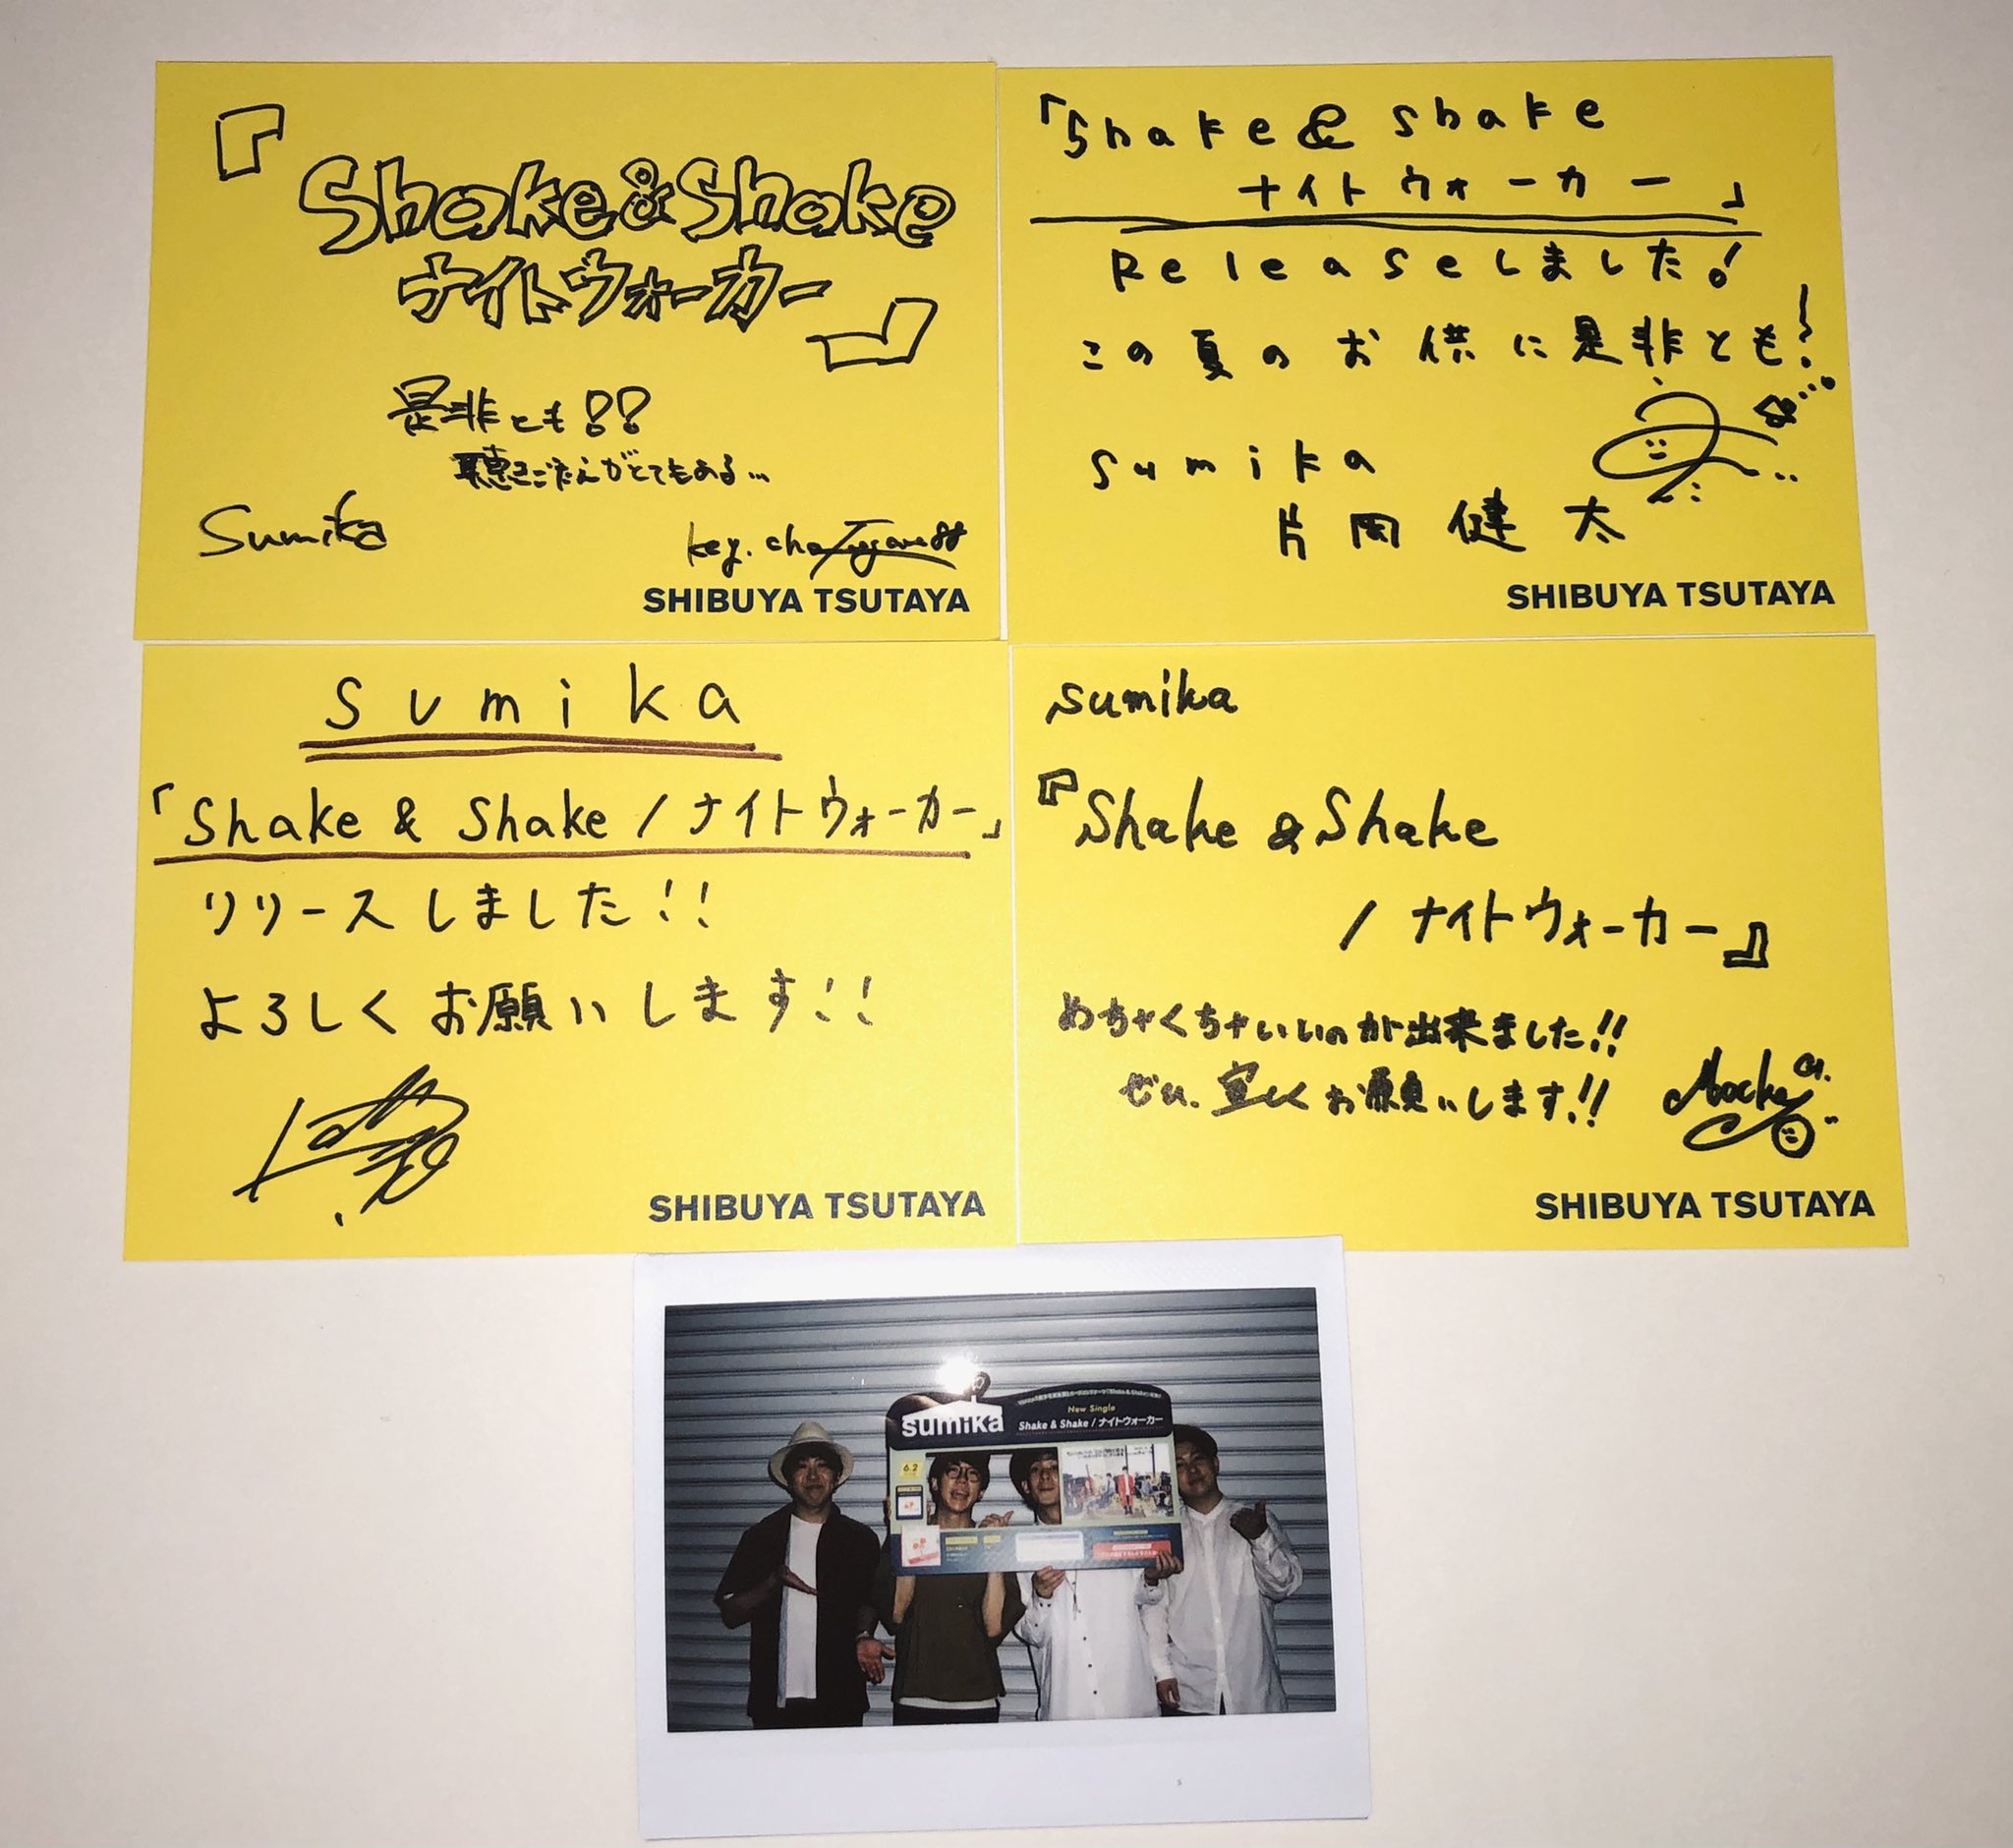 『Shake&Shake
ナイトウォーカー』
是非とも!?
聴きごたえがとてもある...
Sumika
key.
SHIBUYA TSUTAYA
「Shake & Shake
ナイトウォーカー」
Releaseしました!
この夏のお供に是非とも!
sumika
片岡健太
SHIBUYA TSUTAYA
sumika
「Shake & Shake / ナイトウォーカー」
リリースしました!!
よろしくお願いします!!
SHIBUYA TSUTAYA
sumika
『Shake & Shake
/ ナイトウォーカー』
めちゃくちゃいいのが出来ました!!
ぜひ、宜しくお願いします!!
SHIBUYA TSUTAYA
sumika
New Single
Shake & Shake / ナイトウォーカー
6.2